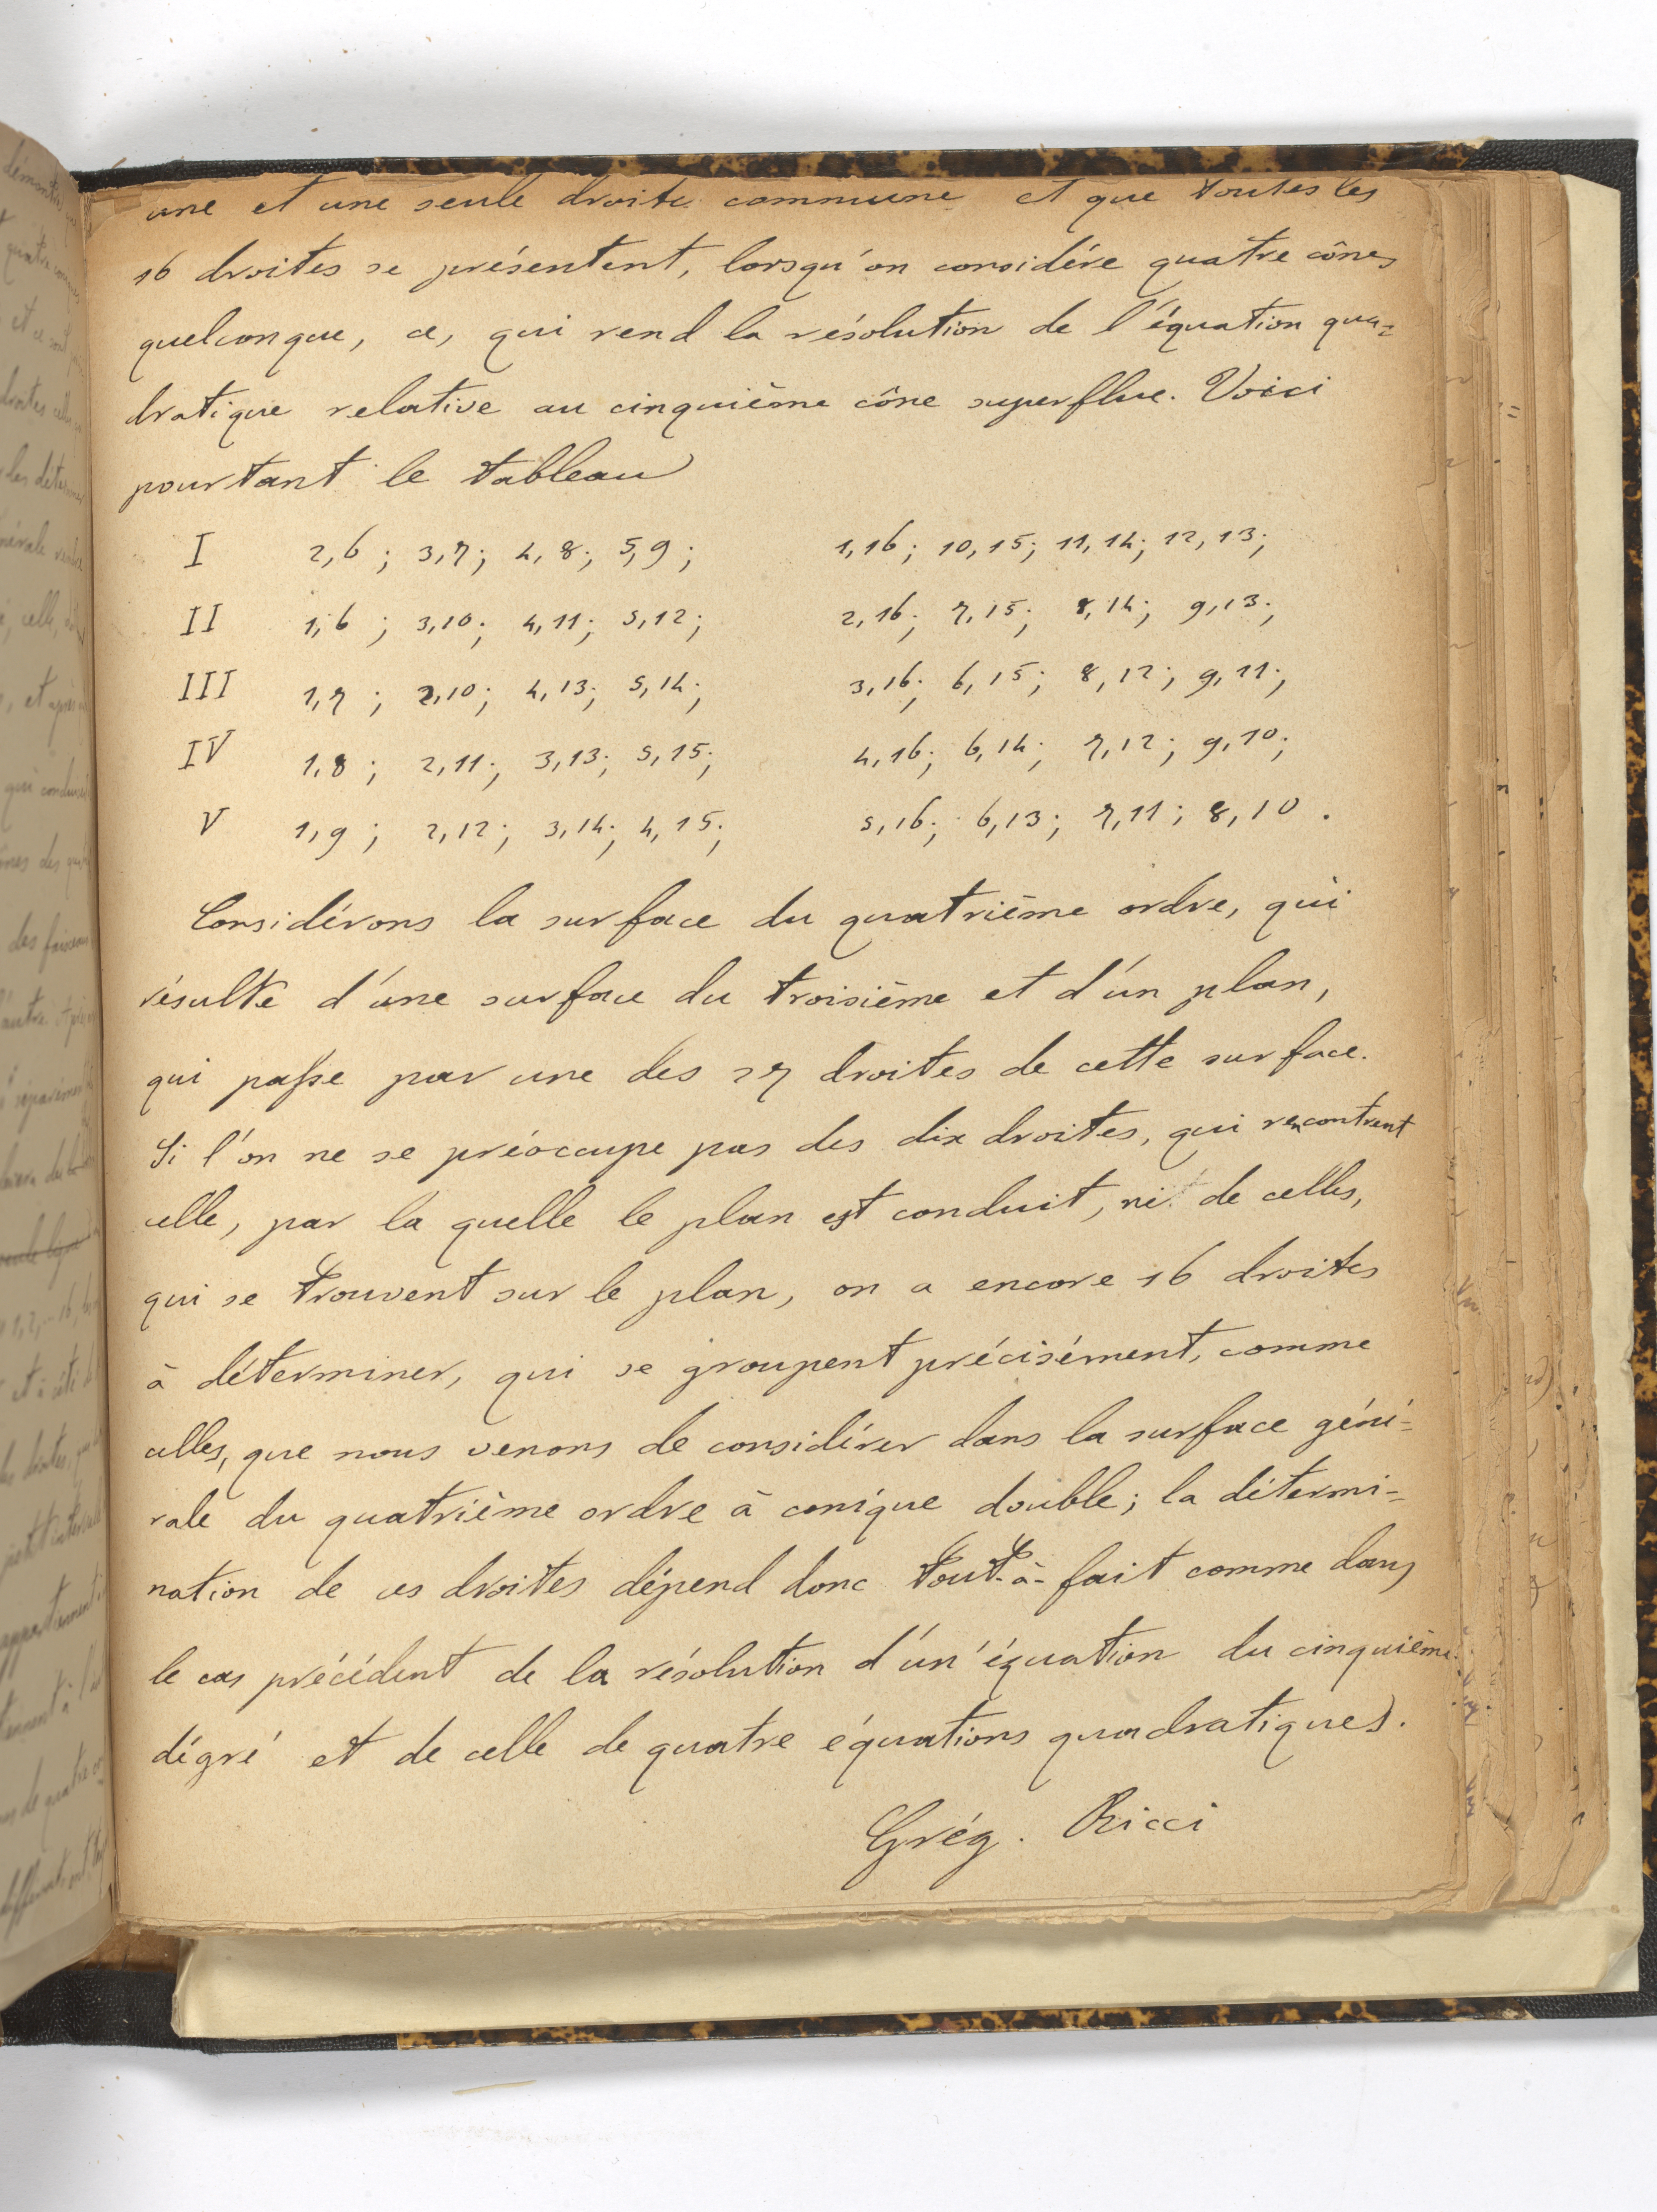 une et une seule droite commune et que toutes les
16 droites se présentent, lorsqu'on considére quatre cônes
quelconque, ce, qui rend la résolution de l'équation qua-
dratique relative au cinquième cône superflue. Voici
pourtant le tableau
I 2,6; 3,7; 4,8; 5,9; 1,16; 10,15; 11,14; 12,13;
II 1,6; 3,10; 4,11; 5,12; 2,16; 7,15; 8,14; 9,13;
III 1,7; 2,10; 4,13; 5,14; 3,16; 6,15; 8,12; 9,11;
IV 1,8; 2,11; 3,13; 5,15; 4,16; 6,14; 7,12; 9,10;
V 1,9; 2,12; 3,14; 4,15; 5,16; 6,13; 7,11; 8,10.
Considérons la surface du quatrième ordre, qui
résulte d'une surface du troisième et d'un plan,
qui passe par une des 27 droites de cette surface.
Si l'on ne se préoccupe pas des dix droites, qui rencontrent
celle, par la quelle le plan est conduit, ni de celles,
qui se trouvent sur le plan, on a encore 16 droites
à déterminer, qui se groupent précisément, comme
celles, que nous venons de considérer dans la surface géné-
rale du quatrième ordre à conique double; la détermi-
nation de ces droites dépend donc tout-à-fait comme dans
le cas précédent de la résolution d'un'équation du cinquième
dégré et de celle de quatre équations quadratiques.
Grég. Ricci